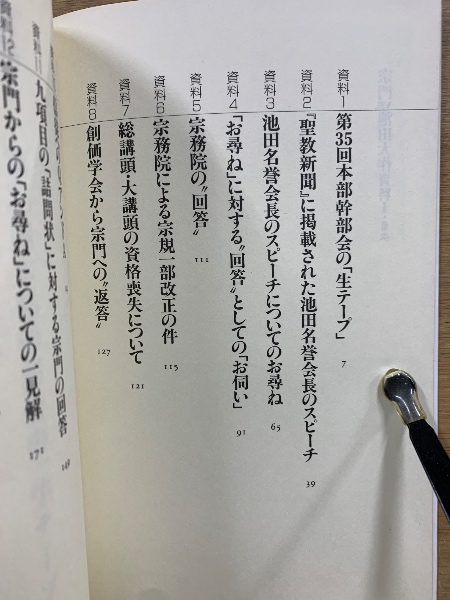 資料1 第35回本部幹部会の「生テープ」 7
資料2 『聖教新聞』に掲載された池田名誉会長のスピーチ 39
資料3 池田名誉会長のスピーチについてのお尋ね 65
資料4 「お尋ね」に対する〝回答〟としての「お伺い」 91
資料5 宗務院の〝回答〟 111
資料6 宗務院による宗規一部改正の件 115
資料7 総講頭・大講頭の資格喪失について 121
資料8 創価学会から宗門への〝返答〟 127
資料11 九項目の「詰問状」に対する宗門の回答
資料12 宗門からの「お尋ね」についての一見解 171